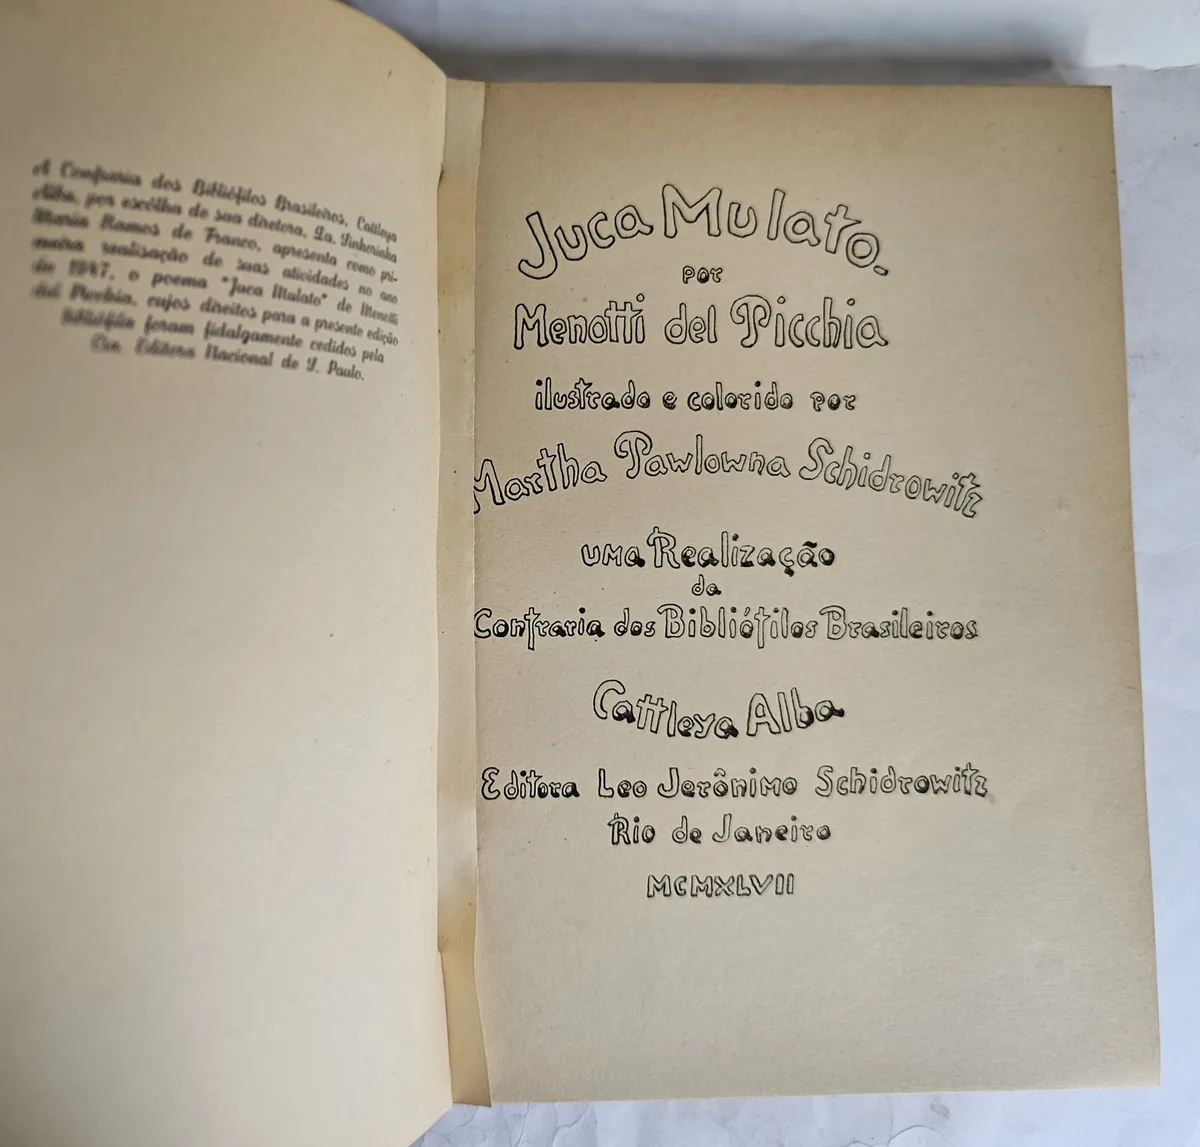 A Confraria dos Bibliófilos Brasileiros, Cattleya
Alba, por escôlha de sua diretora, Da. Sinhorinha
Maria Ramos de Franco, apresenta como pri-
meira realisação de suas atividades no ano
de 1947, o poema "Juca Mulato" de Menotti
del Picchia, cujos direitos para a presente edição
bibliófila foram fidalgamente cedidos pela
Cia. Editora Nacional de S. Paulo.
Juca Mulato.
por
Menotti del Picchia
ilustrado e colorido por
Martha Pawlowna Schidrowitz
uma Realização
da
Confraria dos Bibliófilos Brasileiros
Cattleya Alba
Editora Leo Jerônimo Schidrowitz
Rio de Janeiro
MCMXLVII